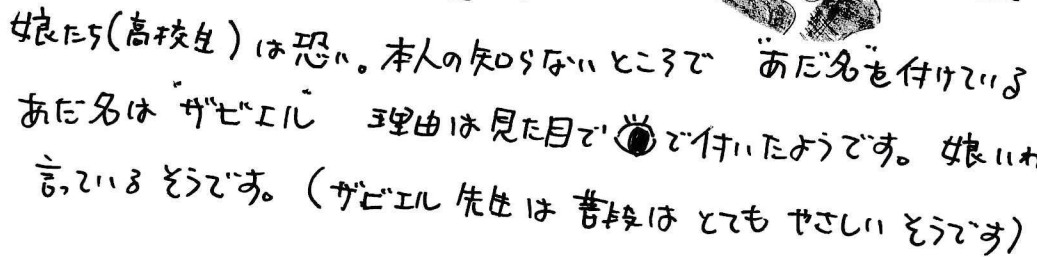 娘たち(高校生)は恐い。本人の知らないところで "あだ名"を付けている
あだ名は "ザビエル" 理由は見た目で で付いたようです。娘いわ
言っているそうです。(ザビエル先生は普段はとてもやさしいそうです)